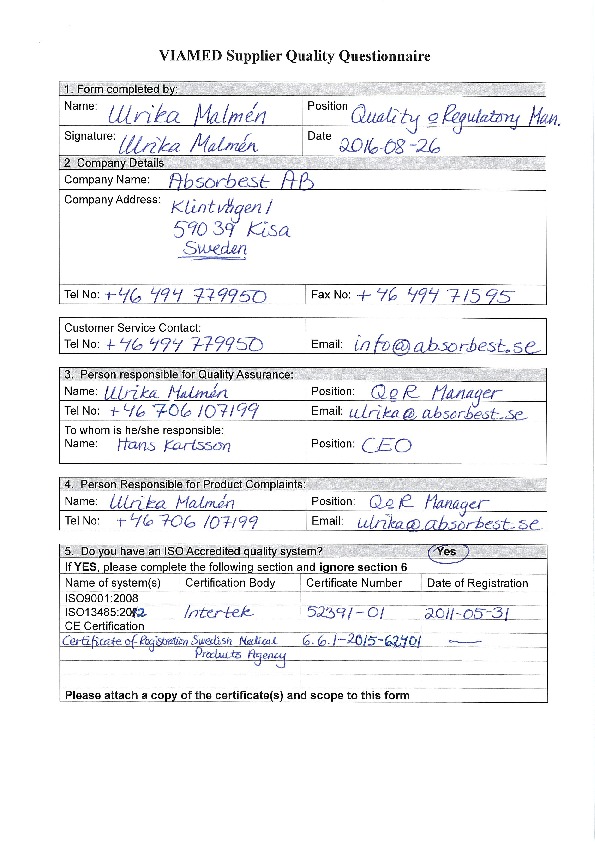 VIAMED Supplier Quality Questionnaire
1. Form completed by:
Name: Ulrika Malmén Position Quality & Regulatory Man.
Signature: Ulrika Malmén Date 2016-08-26
2 Company Details
Company Name: Absorbest AB
Company Address: Klintvägen 1
590 39 Kisa
Sweden
Tel No: +46 494 779950 Fax No: +46 494 71595
Customer Service Contact:
Tel No: +46 494 779950 Email: info@absorbest.se
3. Person responsible for Quality Assurance:
Name: Ulrika Malmén Position: Q&R Manager
Tel No: +46 706 107199 Email: ulrika@absorbest.se
To whom is he/she responsible:
Name: Hans Karlsson Position: CEO
4. Person Responsible for Product Complaints:
Name: Ulrika Malmén Position: Q&R Manager
Tel No: +46 706 107199 Email: ulrika@absorbest.se
5. Do you have an ISO Accredited quality system? Yes
If YES, please complete the following section and ignore section 6
Name of system(s) Certification Body Certificate Number Date of Registration
ISO9001:2008
ISO13485:2012 Intertek 52391-01 2011-05-31
CE Certification
Certificate of Registration Swedish Medical 6.6.1-2015-62701 —
Products Agency
Please attach a copy of the certificate(s) and scope to this form